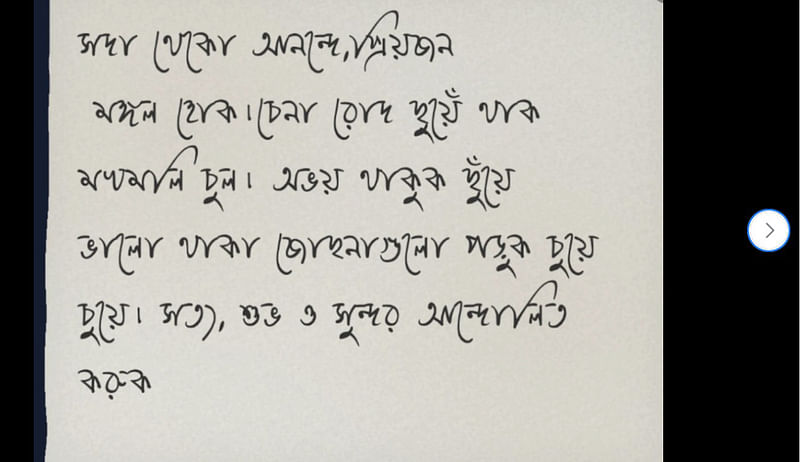 সদা থেকো আনন্দে, প্রিয়জন
মঙ্গল হোক। চেনা রোদ ছুয়েঁ থাক
মখমলি চুল। অভয় থাকুক ছুঁয়ে
ভালো থাকা জোছনাগুলো পড়ুক চুয়ে
চুয়ে। সত্য, শুভ ও সুন্দর আন্দোলিত
করুক